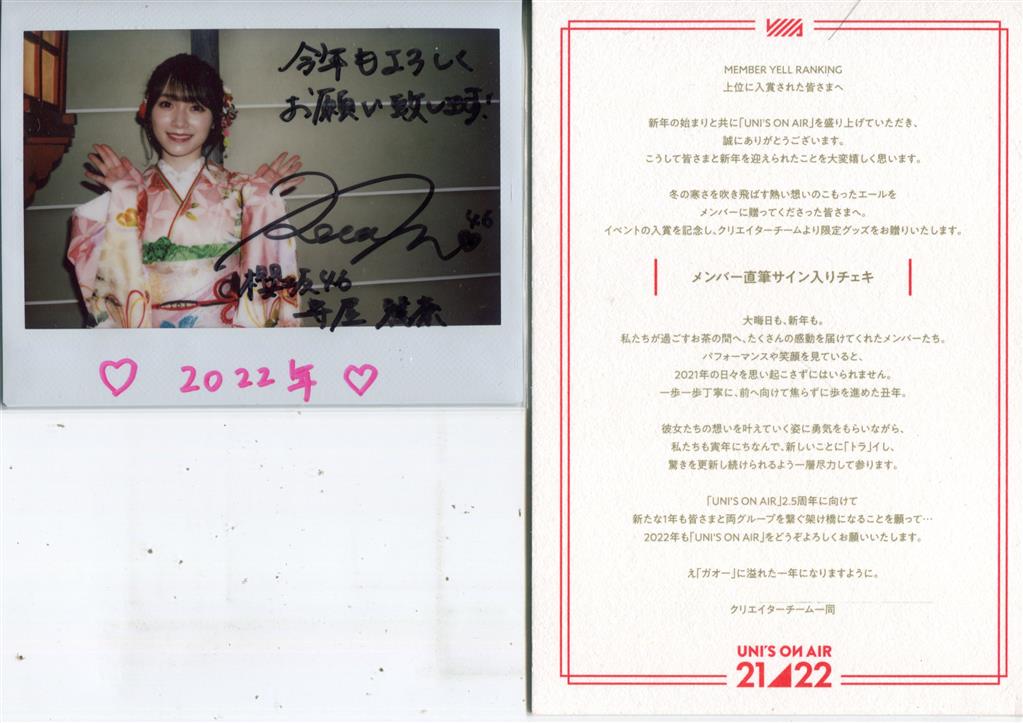 今年もよろしく
お願い致します!
46
櫻坂46
守屋 麗奈
2022年
MEMBER YELL RANKING
上位に入賞された皆さまへ
新年の始まりと共に「UNI'S ON AIR」を盛り上げていただき、
誠にありがとうございます。
こうして皆さまと新年を迎えられたことを大変嬉しく思います。
冬の寒さを吹き飛ばす熱い想いのこもったエールを
メンバーに贈ってくださった皆さまへ。
イベントの入賞を記念し、クリエイターチームより限定グッズをお贈りいたします。
メンバー直筆サイン入りチェキ
大晦日も、新年も。
私たちが過ごすお茶の間へ、たくさんの感動を届けてくれたメンバーたち。
パフォーマンスや笑顔を見ていると、
2021年の日々を思い起こさずにはいられません。
一歩一歩丁寧に、前へ向けて焦らずに歩を進めた丑年。
彼女たちの想いを叶えていく姿に勇気をもらいながら、
私たちも寅年にちなんで、新しいことに「トラ」イし、
驚きを更新し続けられるよう一層尽力して参ります。
「UNI'S ON AIR」2.5周年に向けて
新たな1年も皆さまと両グループを繋ぐ架け橋になることを願って…
2022年も「UNI'S ON AIR」をどうぞよろしくお願いいたします。
え「ガオー」に溢れた一年になりますように。
クリエイターチーム一同
UNI'S ON AIR
21 22